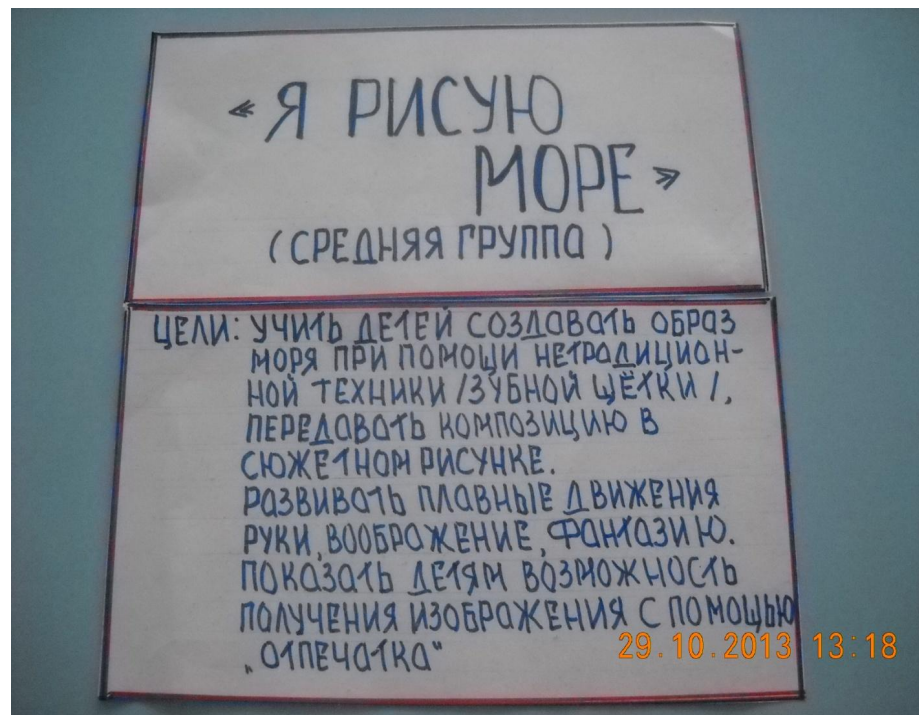 « Я РИСУЮ
МОРЕ »
( СРЕДНЯЯ ГРУППА )
ЦЕЛИ: УЧИТЬ ДЕТЕЙ СОЗДАВАТЬ ОБРАЗ
МОРЯ ПРИ ПОМОЩИ НЕТРАДИЦИОН-
НОЙ ТЕХНИКИ /ЗУБНОЙ ЩЁТКИ /,
ПЕРЕДАВАТЬ КОМПОЗИЦИЮ В
СЮЖЕТНОМ РИСУНКЕ.
РАЗВИВАТЬ ПЛАВНЫЕ ДВИЖЕНИЯ
РУКИ, ВООБРАЖЕНИЕ, ФАНТАЗИЮ.
ПОКАЗАТЬ ДЕТЯМ ВОЗМОЖНОСТЬ
ПОЛУЧЕНИЯ ИЗОБРАЖЕНИЯ С ПОМОЩЬЮ
„ОТПЕЧАТКА"
29.10.2013 13:18